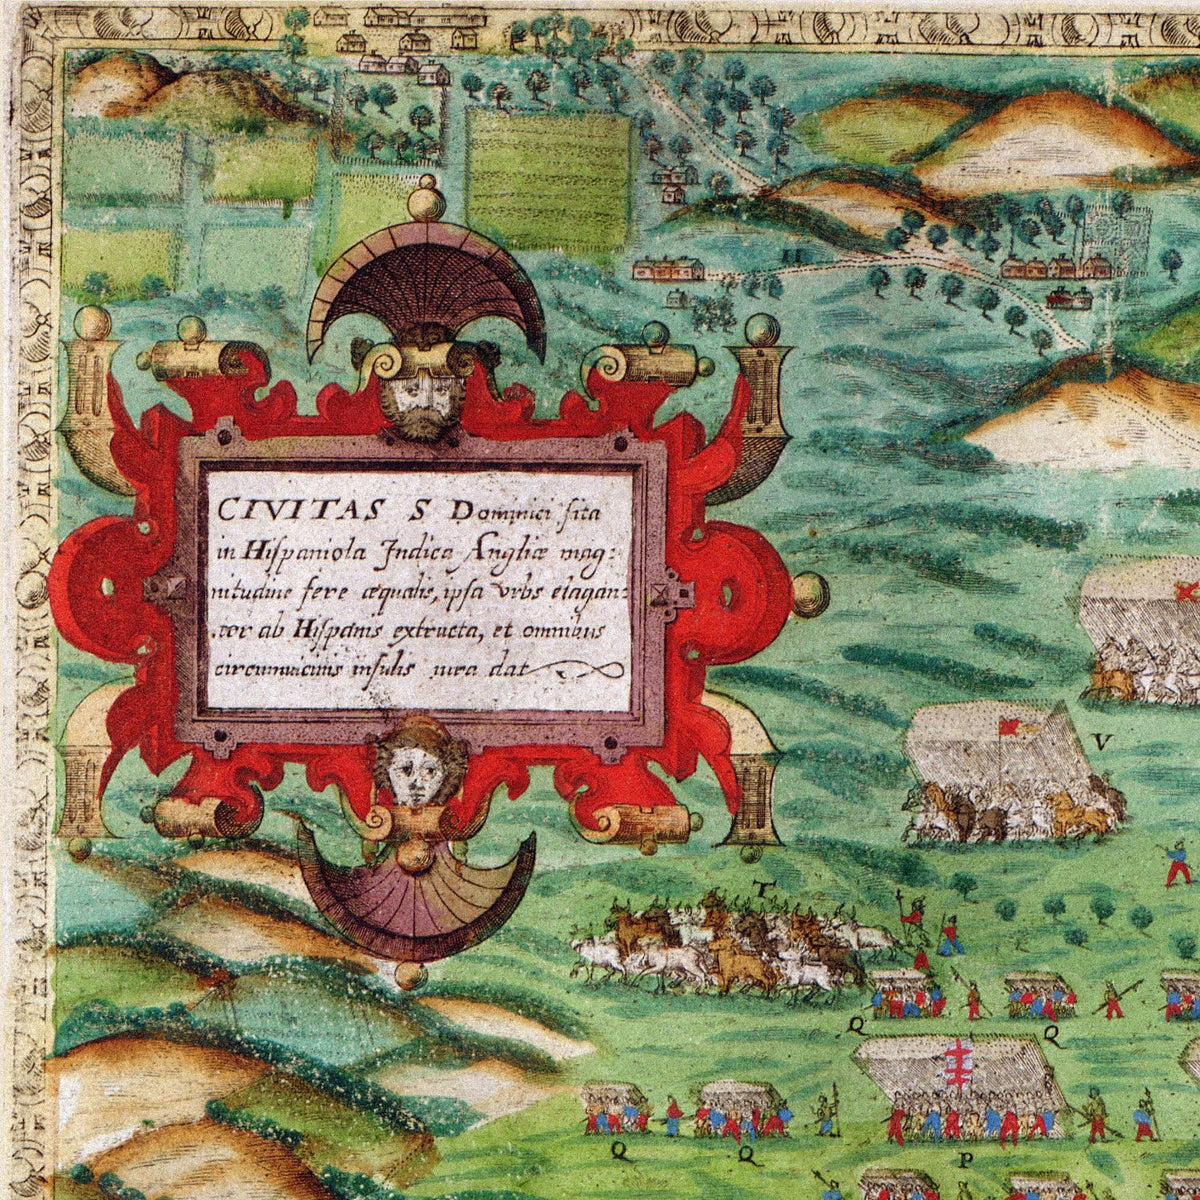 CIVITAS S Dominici sita
in Hispaniola Indica Angliæ mag:
nitudine fere æqualis, ipsa vrbs elegan:
ter ab Hispanis extructa, et omnibus
circumuicinis insulis iura dat
H
V
T
Q
Q
Q
Q
P